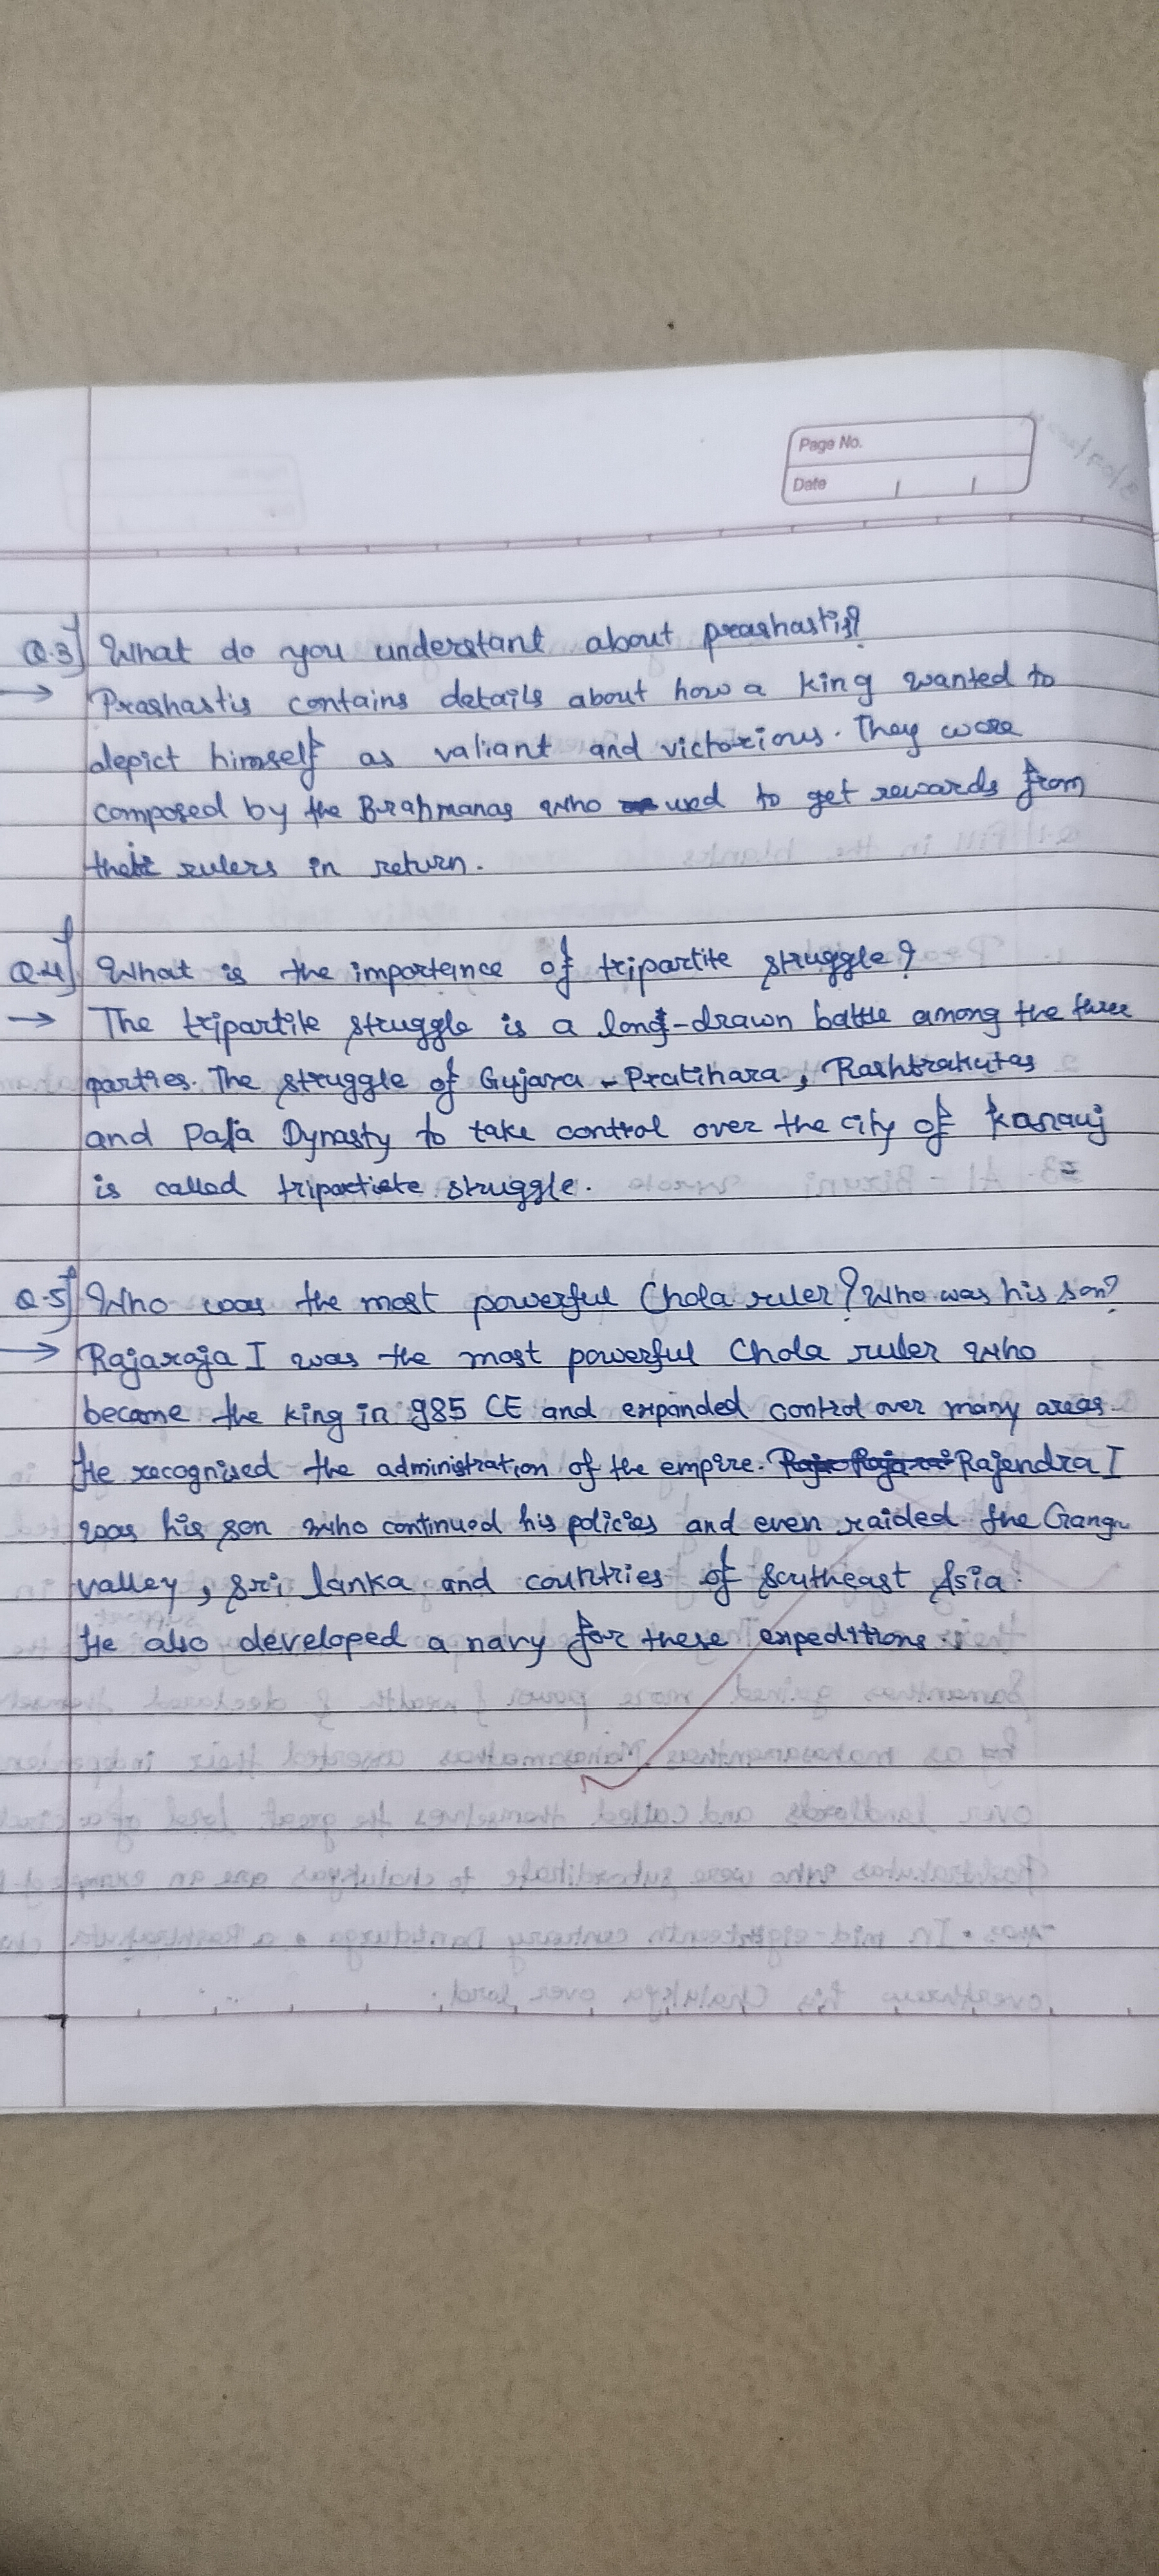 Page No.
Date
Q.3] What do you understant about prashastis?
→ Prashastis contains details about how a king wanted to
depict himself as valiant and victorious. They were
composed by the Brahmanas who used to get rewards from
their rulers in return.
Q.4] What is the importance of tripartite struggle?
→ The tripartite struggle is a long-drawn battle among the three
parties. The struggle of Gujara - Pratihara, Rashtrakutas
and Pala Dynasty to take control over the city of Kanauj
is called tripartite struggle.
Q.5] Who was the most powerful Chola ruler? Who was his son?
→ Rajaraja I was the most powerful Chola ruler who
became the king in 985 CE and expanded control over many areas.
He recognised the administration of the empire. Rajendra I
was his son who continued his policies and even raided the Ganga
valley, Sri lanka and countries of Southeast Asia.
He also developed a navy for these expeditions.